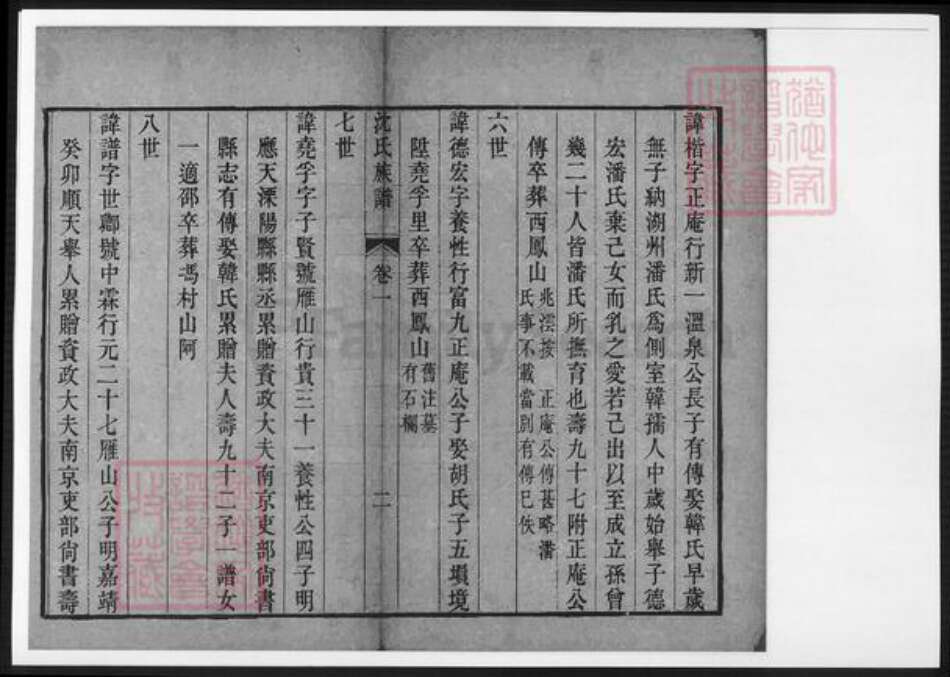 諱楷字正庵行新一溫泉公長子有傳娶韓氏早歲
無子納湖州潘氏爲側室韓孺人中歲始舉子德
宏潘氏棄己女而乳之愛若己出以至成立孫曾
幾二十人皆潘氏所撫育也壽九十七附正庵公
傳卒葬西鳳山兆澐按 正庵公傳甚略潘
氏事不載當別有傳已佚
六世
諱德宏字養性行富九正庵公子娶胡氏子五塤境
陞堯孚里卒葬西鳳山舊注墓
有石欄
沈氏族譜 卷一 二
七世
諱堯孚字子賢號雁山行貴三十一養性公四子明
應天溧陽縣縣丞累贈資政大夫南京吏部尙書
縣志有傳娶韓氏累贈夫人壽九十二子一譜女
一適邵卒葬馮村山阿
八世
諱譜字世卿號中霖行元二十七雁山公子明嘉靖
癸卯順天舉人累贈資政大夫南京吏部尙書壽